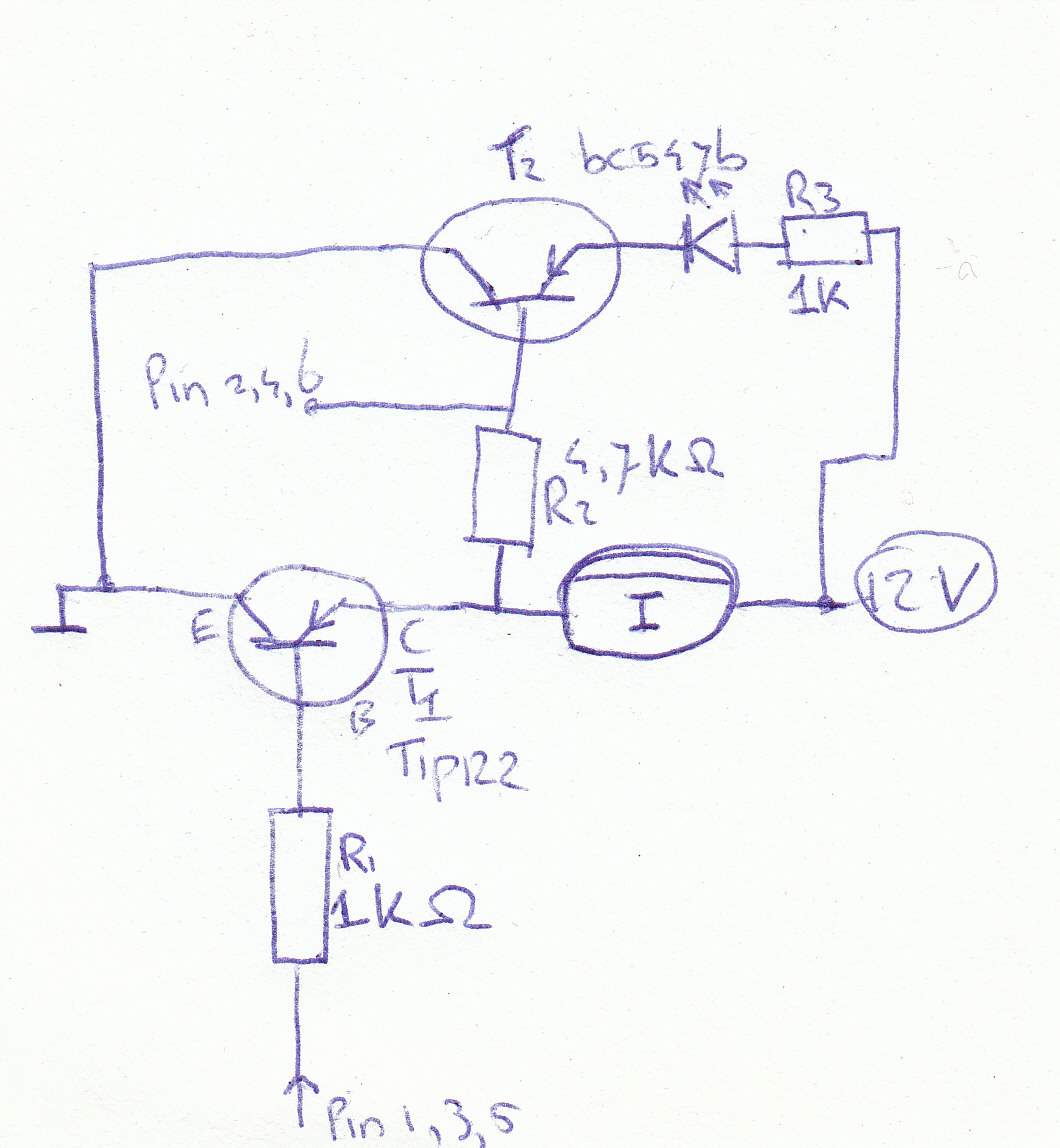 T2 bc547b
R3
1K
Pin 2,4,6
4,7KΩ
R2
12V
I
E
C
B
T1
Tip122
R1
1KΩ
Pin 1,3,5